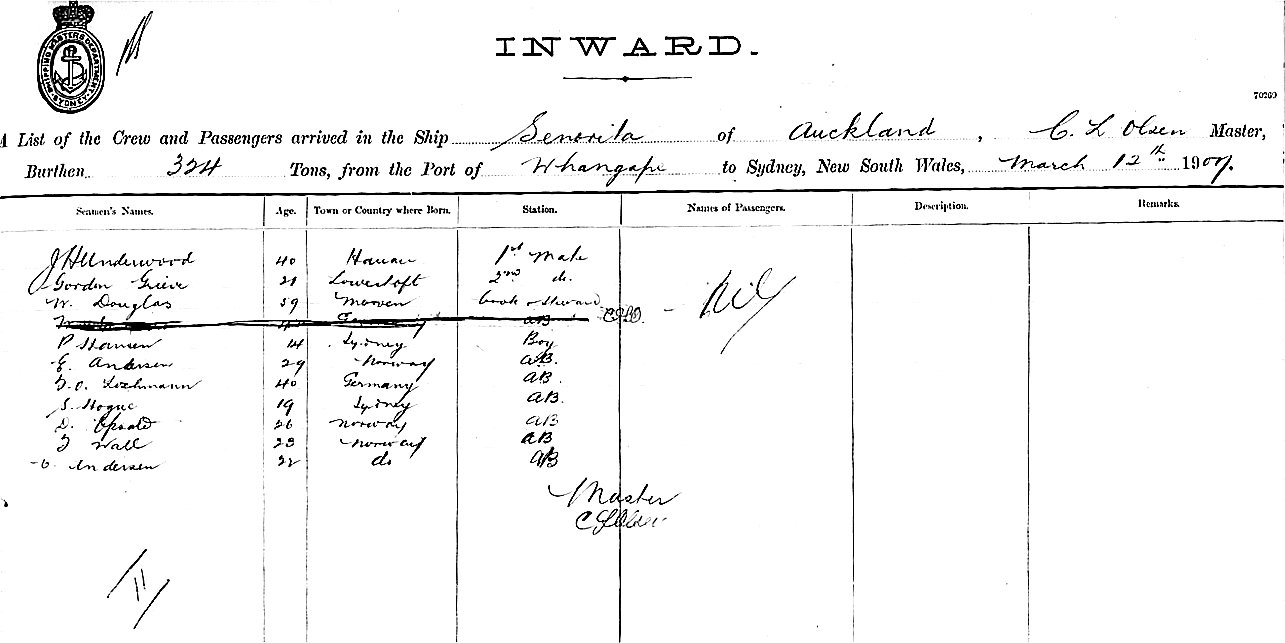 SHIPPING MASTERS DEPARTMENT SYDNEY
INWARD.
70269
A List of the Crew and Passengers arrived in the Ship Senorita of Auckland, C. L Olsen Master,
Burthen 324 Tons, from the Port of Whangape to Sydney, New South Wales, March 12th 1907.
Seamen's Names. Age. Town or Country where Born. Station. Names of Passengers. Description. Remarks.
J H Underwood 40 1st Mate
Gordon Grieve 21 Lowestoft 2nd do. Nil
W. Douglas 59 Morven Cook & Steward
AB
P Hansen 14 Sydney Boy
E. Andersen 29 Norway AB.
40 Germany AB.
S. Hogue 19 Sydney AB.
D. 26 Norway AB
Wall 23 Norway AB
Andersen 22 do AB
Master
C L Olsen
11